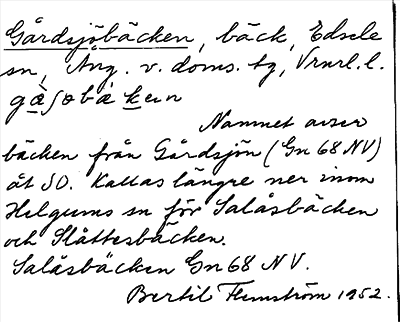 Gårdsjöbäcken, bäck, Edsele
sn, Ång. v. doms. tg, Vrnrl.l.
Namnet avser
bäcken från Gårdsjön (Gn 68 NV)
åt SO. Kallas längre ner inom
Helgums sn för Salåsbäcken
och Slåttesbäcken.
Salåsbäcken Gn 68 NV.
Bertil Flemström 1952.